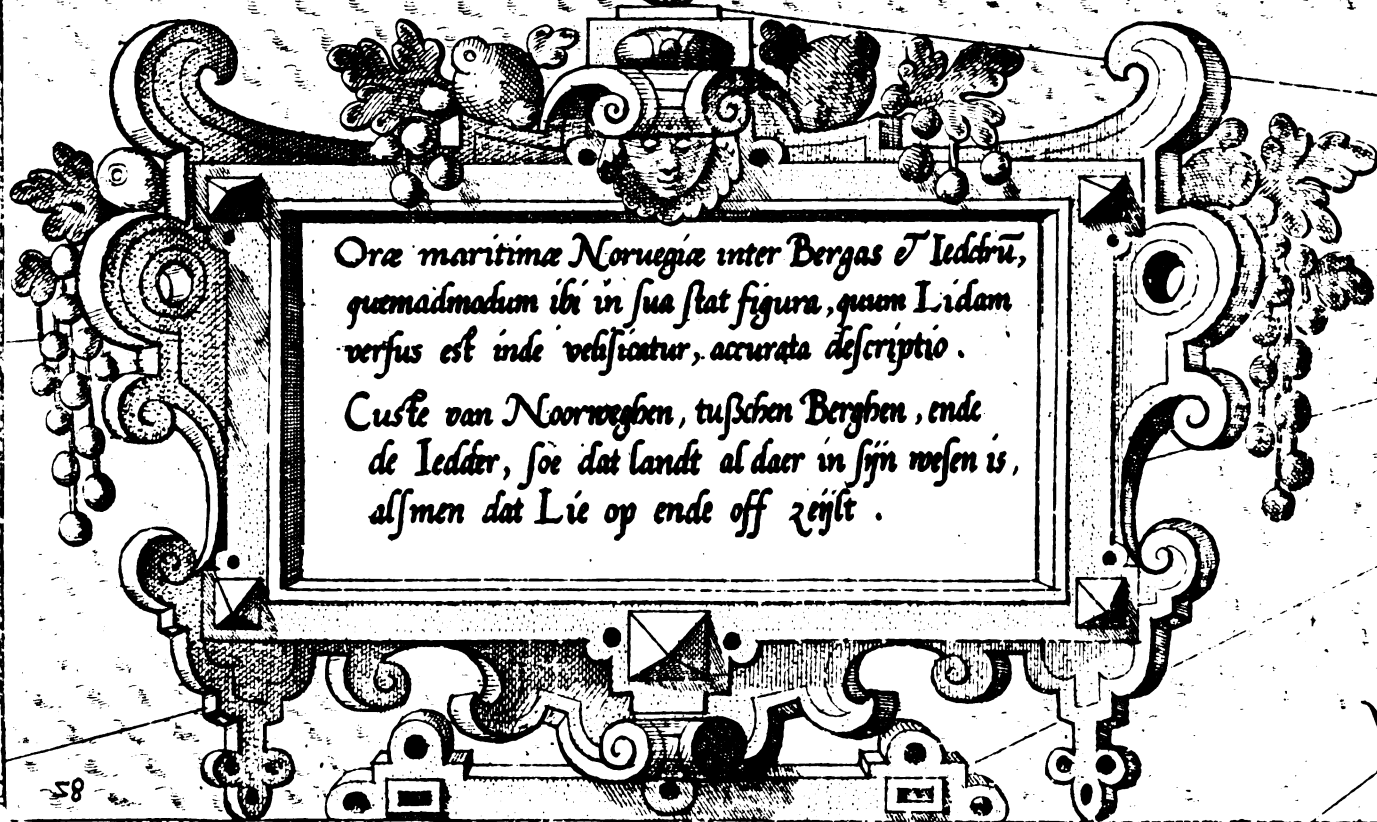 Oræ maritimæ Noruegiæ inter Bergas & Ieddrū,
quemadmodum ibi in ſua ſtat figura, quum Lidam
verſus eſt inde veliſicatur, accurata deſcriptio.
Cuſte van Noorweghen, tußchen Berghen, ende
de Iedder, ſoe dat landt al daer in ſijn weſen is,
alſmen dat Lie op ende off zeijlt.
28